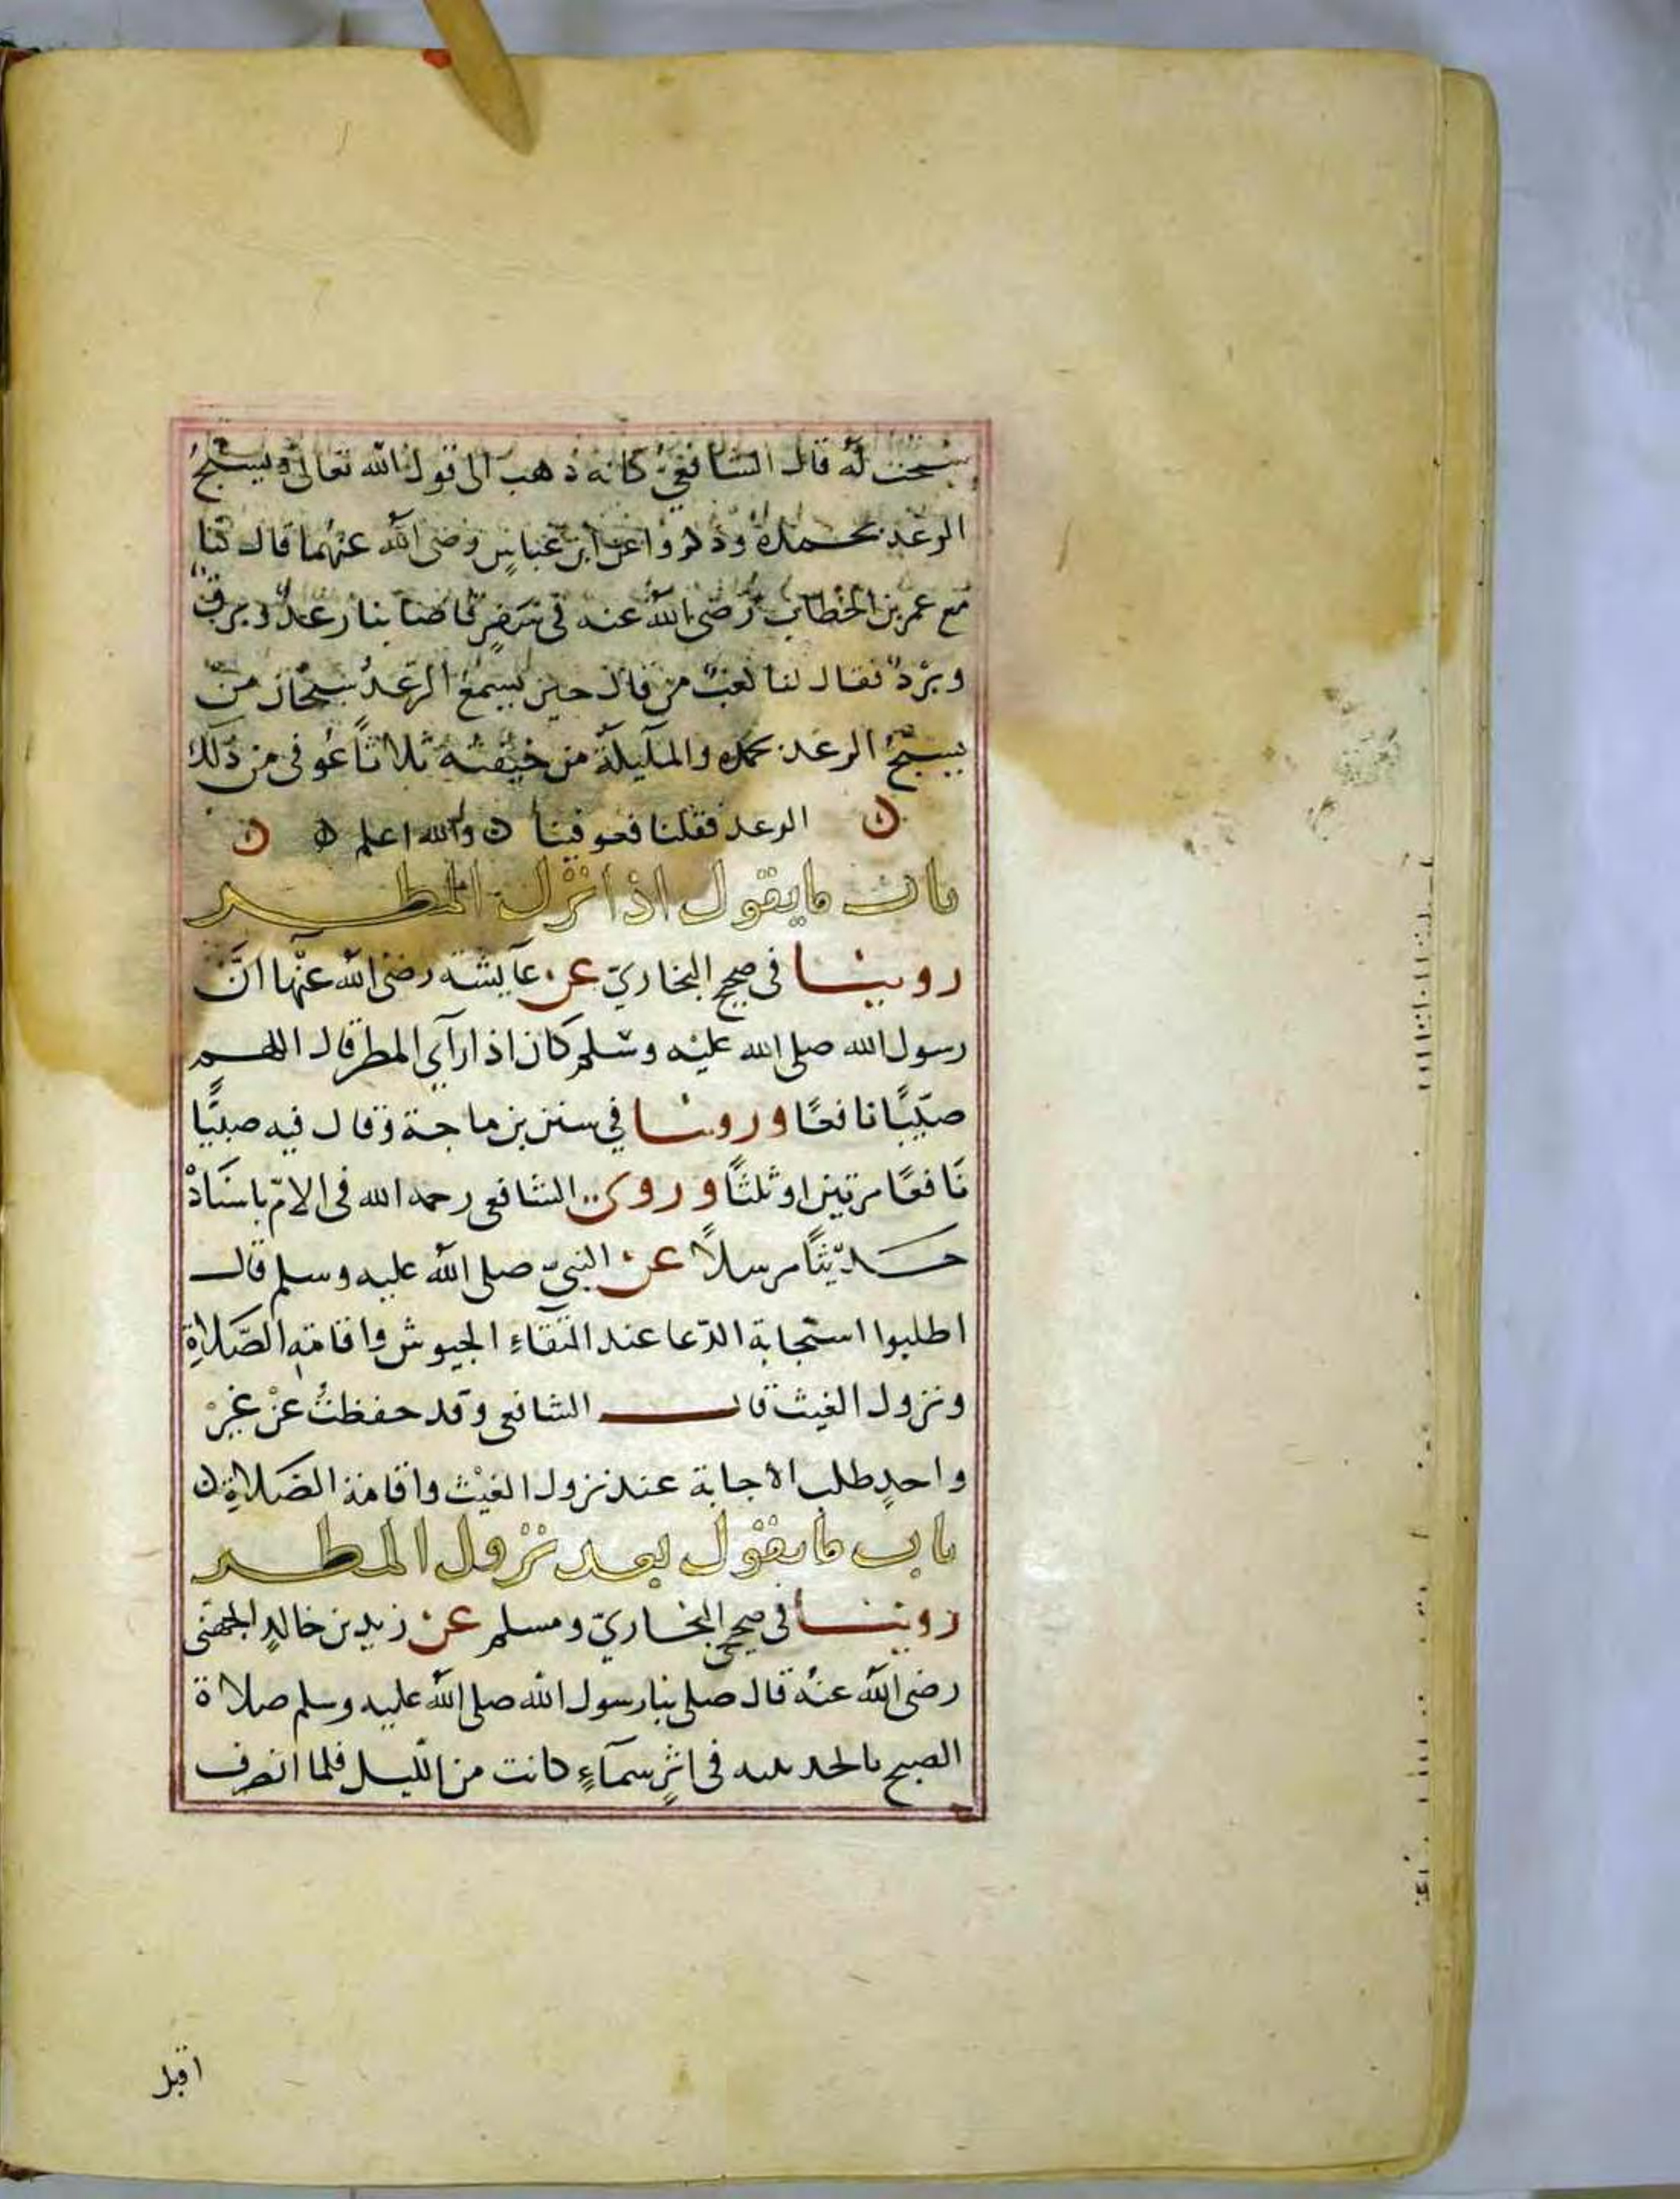 سبحت له قال الشافعي كانه ذهب الى قول الله تعالى ويسبح
الرعد بحمده وذكروا عن ابن عباس رضى الله عنهما قال كنا
مع عمر بن الخطاب رضى الله عنه فى سفر فاصابنا رعد وبرق
وبرد فقال لنا كعب من قال حين يسمع الرعد سبحان من
يسبح الرعد بحمده والمليكة من خيفته ثلاثا عوفى من ذلك
الرعد فقلنا فعوفينا والله اعلم
باب مايقول اذا نزل المطر
روينا فى صحيح البخاري عن عايشة رضى الله عنها ان
رسول الله صلى الله عليه وسلم كان اذا رآى المطر قال اللهم
صيبا نافعا وروينا في سنن بن ماجة وقال فيه صيبا
نافعا مرتين او ثلثا وروى الشافعى رحمه الله فى الام باسناد
حديثا مرسلا عن النبى صلى الله عليه وسلم قال
اطلبوا استجابة الدعا عند التقاء الجيوش واقامة الصلاة
ونزول الغيث قال الشافعى وقد حفظت عن غير
واحد طلب الاجابة عند نزول الغيث واقامة الصلاة
باب مايقول بعد نزول المطر
روينا فى صحيح البخاري ومسلم عن زيد بن خالد الجهنى
رضى الله عنه قال صلى بنا رسول الله صلى الله عليه وسلم صلاة
الصبح بالحديبيه فى اثر سمآء كانت من الليل فلما انصرف
اقبل